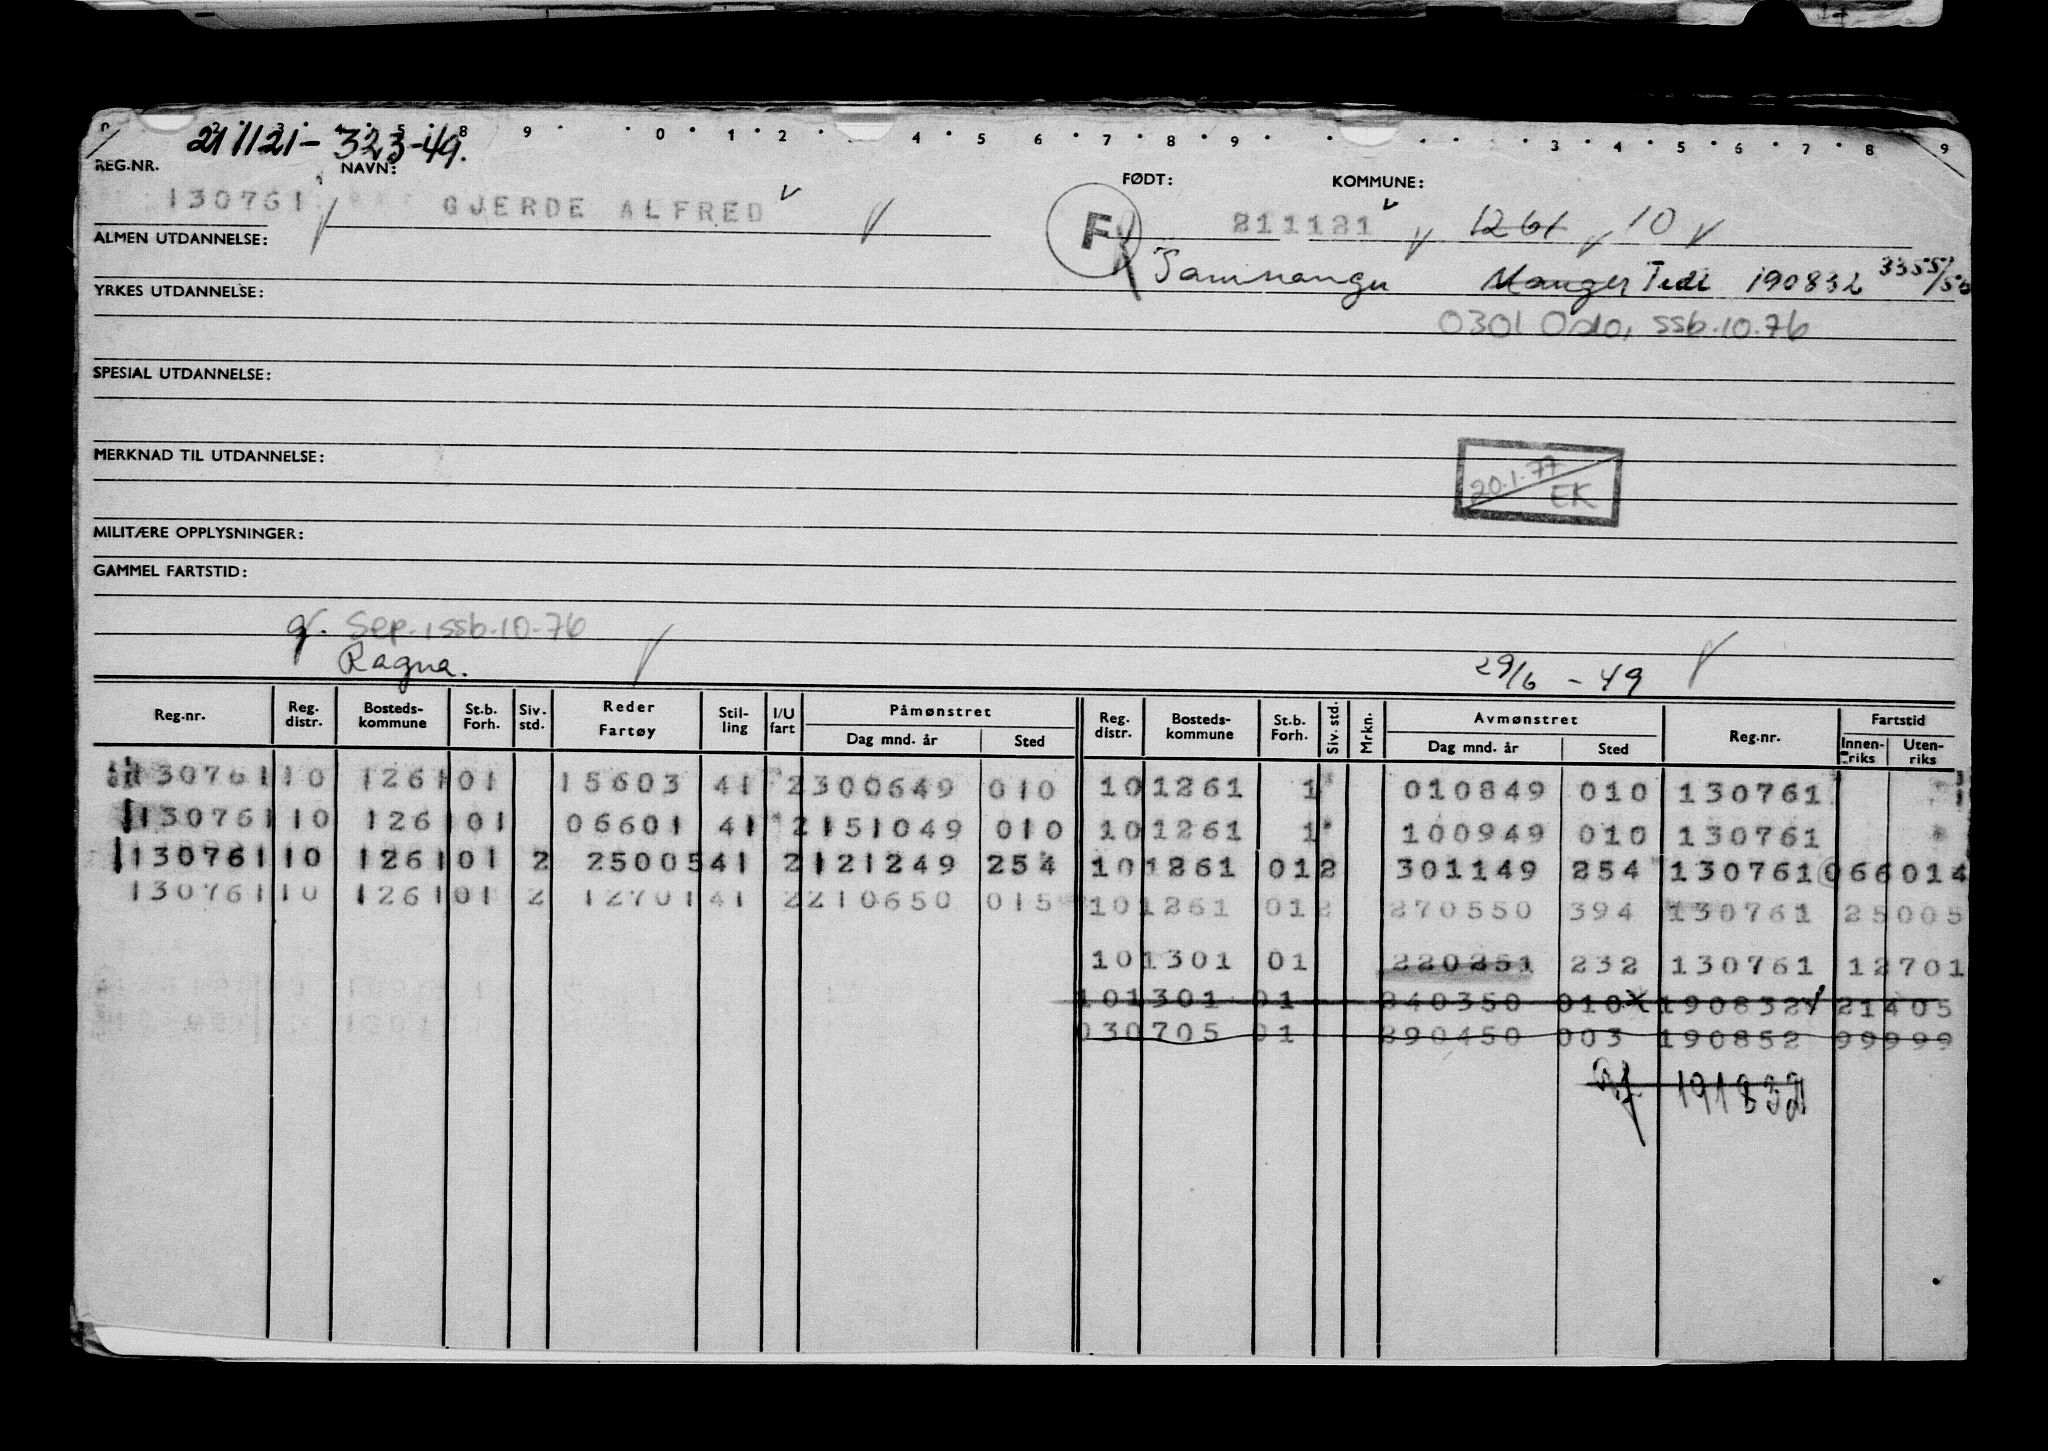 211121-323-49.
9 0 1 2 4 5 6 7 8 9 3 4 5 6 7 8 9
REG.NR. NAVN: FØDT: KOMMUNE:
130761 GJERDE ALFRED F 211121 1261 10
ALMEN UTDANNELSE:
Samnanger Manger Tidl 190832 3355/50
YRKES UTDANNELSE:
0301 Oslo, ssb.10.76
SPESIAL UTDANNELSE:
MERKNAD TIL UTDANNELSE:
20.1.77 EK
MILITÆRE OPPLYSNINGER:
GAMMEL FARTSTID:
g. Sep. ssb.10-76
Ragna. 29/6 - 49
Reg.nr. Reg. distr. Bosteds-kommune St.b. Forh. Siv. std. Reder Fartøy Stil-ling I/U fart Påmønstret Dag mnd. år Sted Reg. distr. Bosteds-kommune St.b. Forh. Siv. std. Mrkn. Avmønstret Dag mnd. år Sted Reg.nr. Fartstid Innen-riks Uten-riks
130761 10 1261 01 15603 41 2 300649 010 10 1261 1 010849 010 130761
130761 10 1261 01 06601 41 2 151049 010 10 1261 1 100949 010 130761
130761 10 1261 01 2 25005 41 2 121249 254 10 1261 01 2 301149 254 130761 066014
130761 10 1261 01 2 12701 41 2 210650 015 10 1261 01 2 270550 394 130761 25005
10 1301 01 220251 232 130761 12701
10 1301 01 240350 010 190832 21405
03 0705 01 290450 003 190852 99999